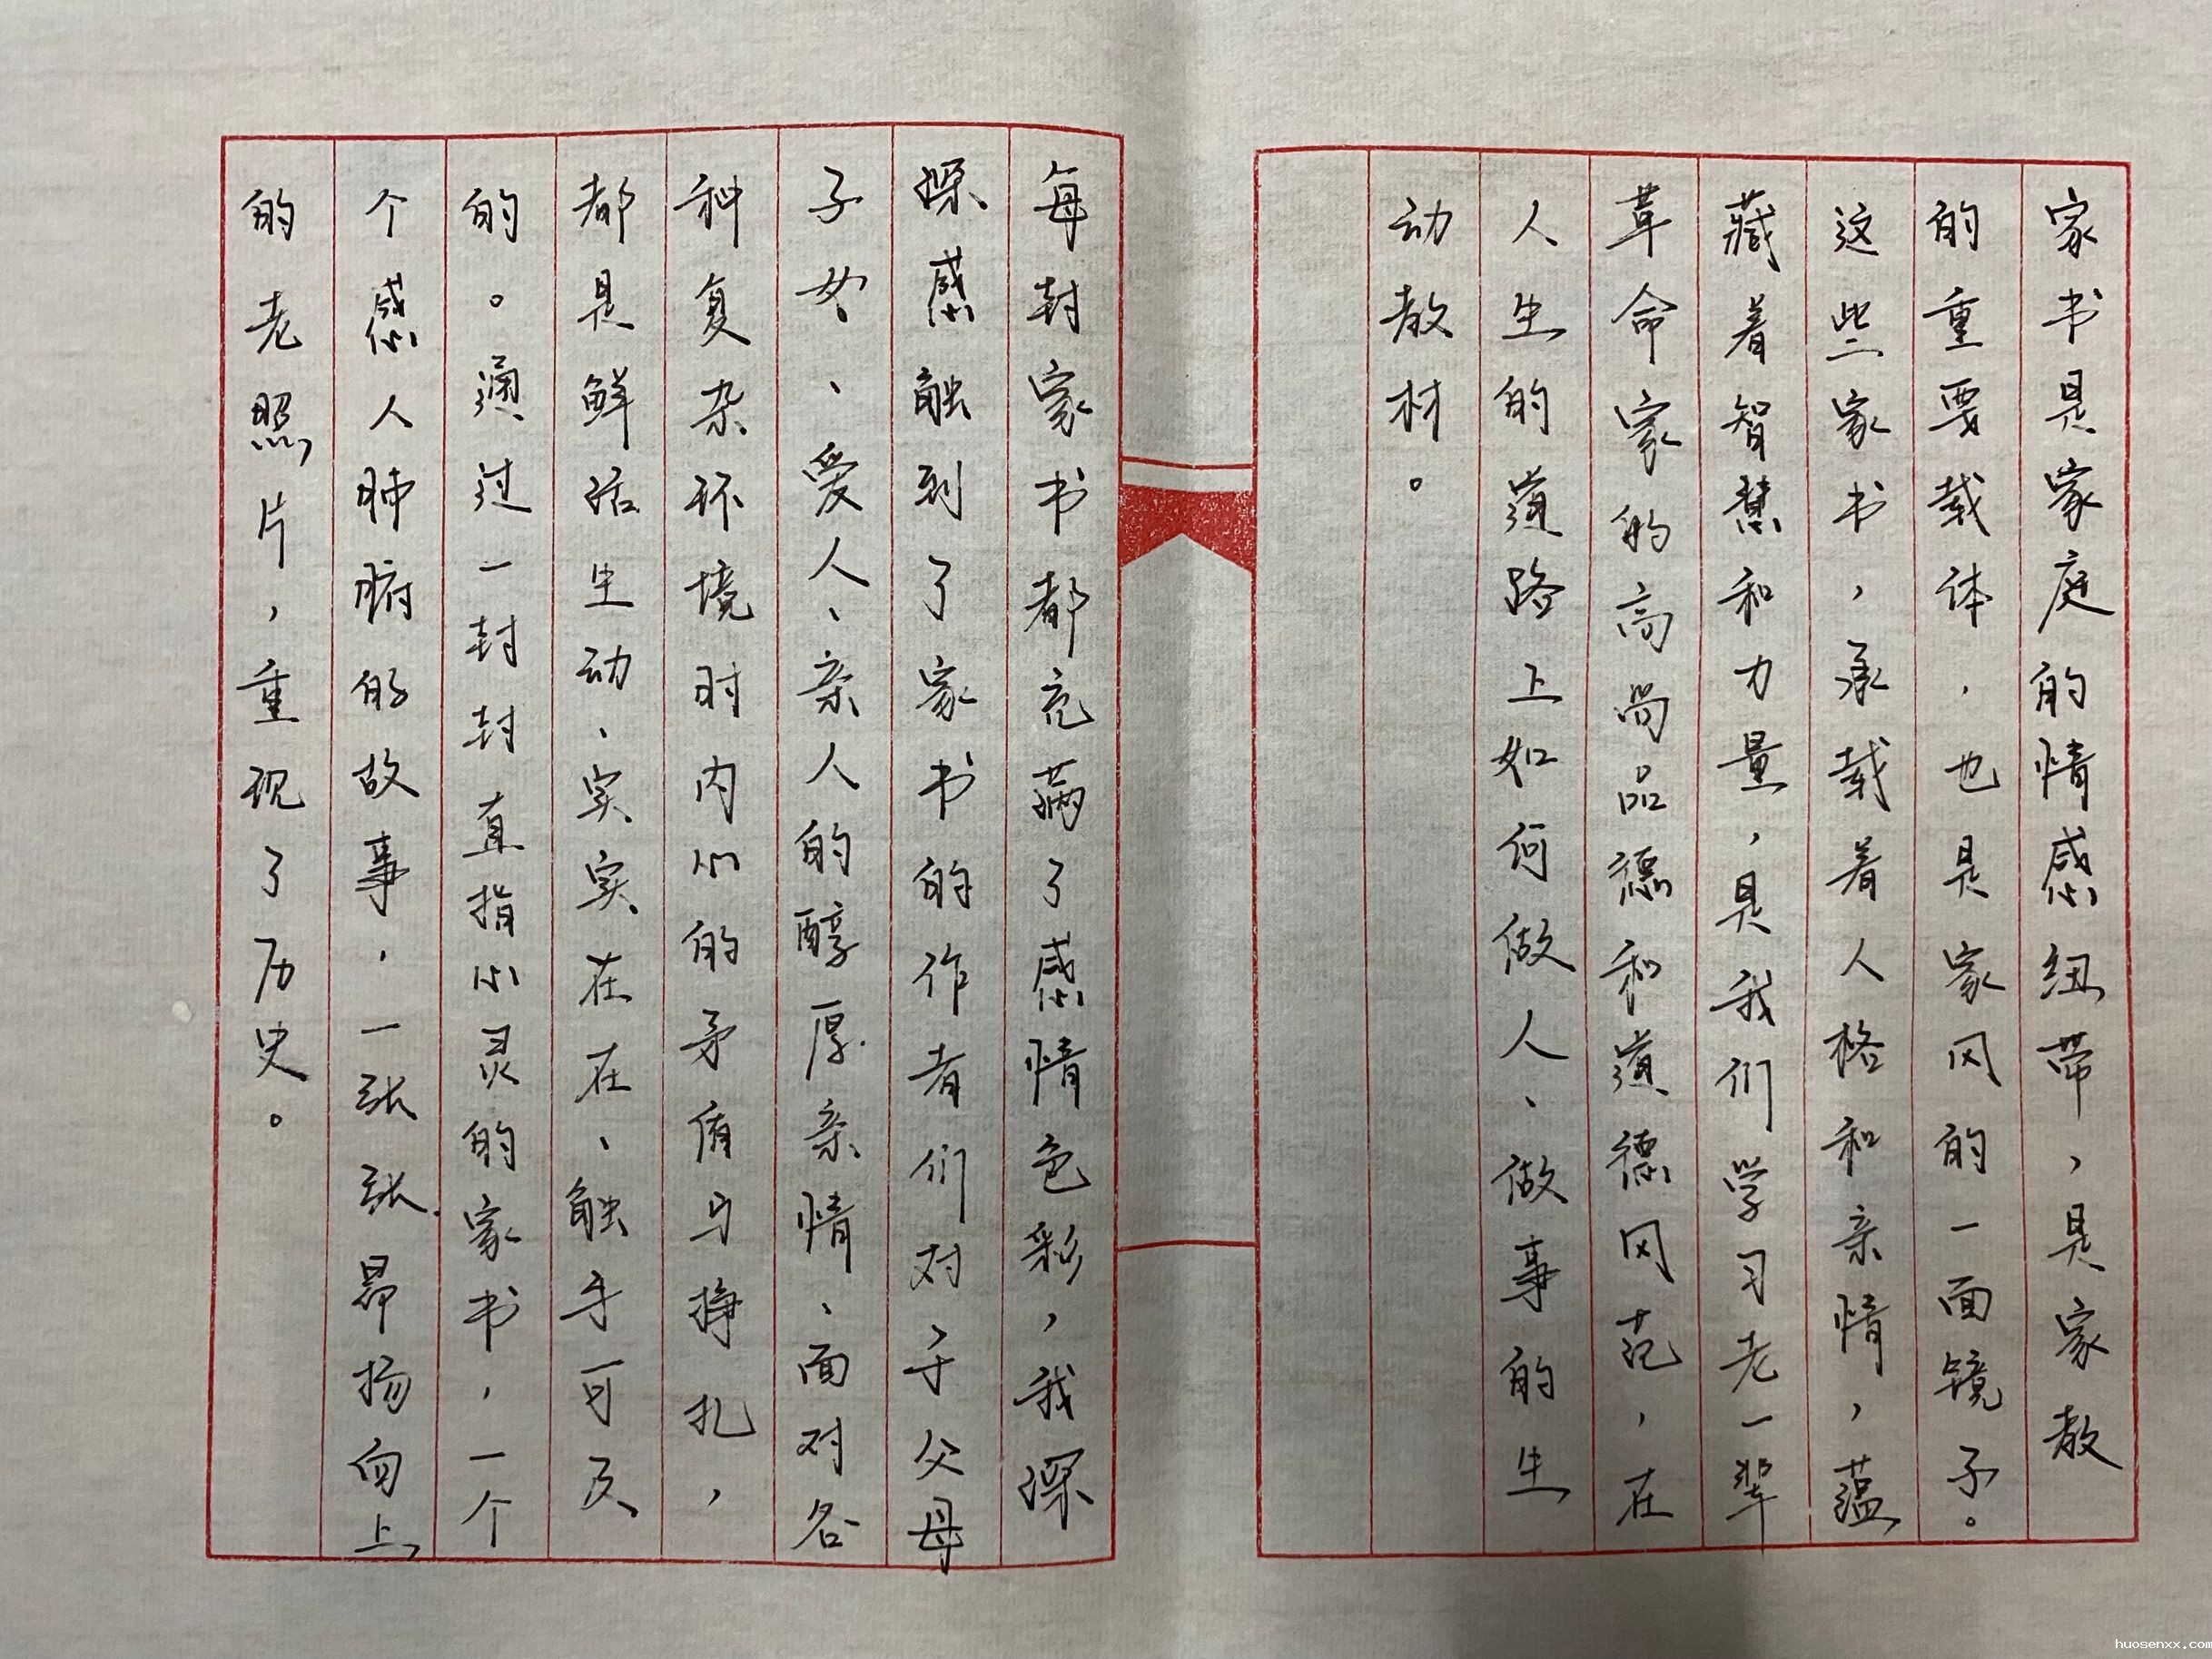 家书是家庭的情感纽带，是家教
的重要载体，也是家风的一面镜子。
这些家书，承载着人格和亲情，蕴
藏着智慧和力量，是我们学习老一辈
革命家的高尚品德和道德风范，在
人生的道路上如何做人、做事的生
动教材。
每封家书都充满了感情色彩，我深
深感触到了家书的作者们对于父母
子女、爱人、亲人的醇厚亲情、面对各
种复杂环境时内心的矛盾与挣扎，
都是鲜活生动、实实在在、触手可及
的。通过一封封直指心灵的家书，一个
个感人肺腑的故事，一张张昂扬向上
的老照片，重现了历史。
huosenxx.com